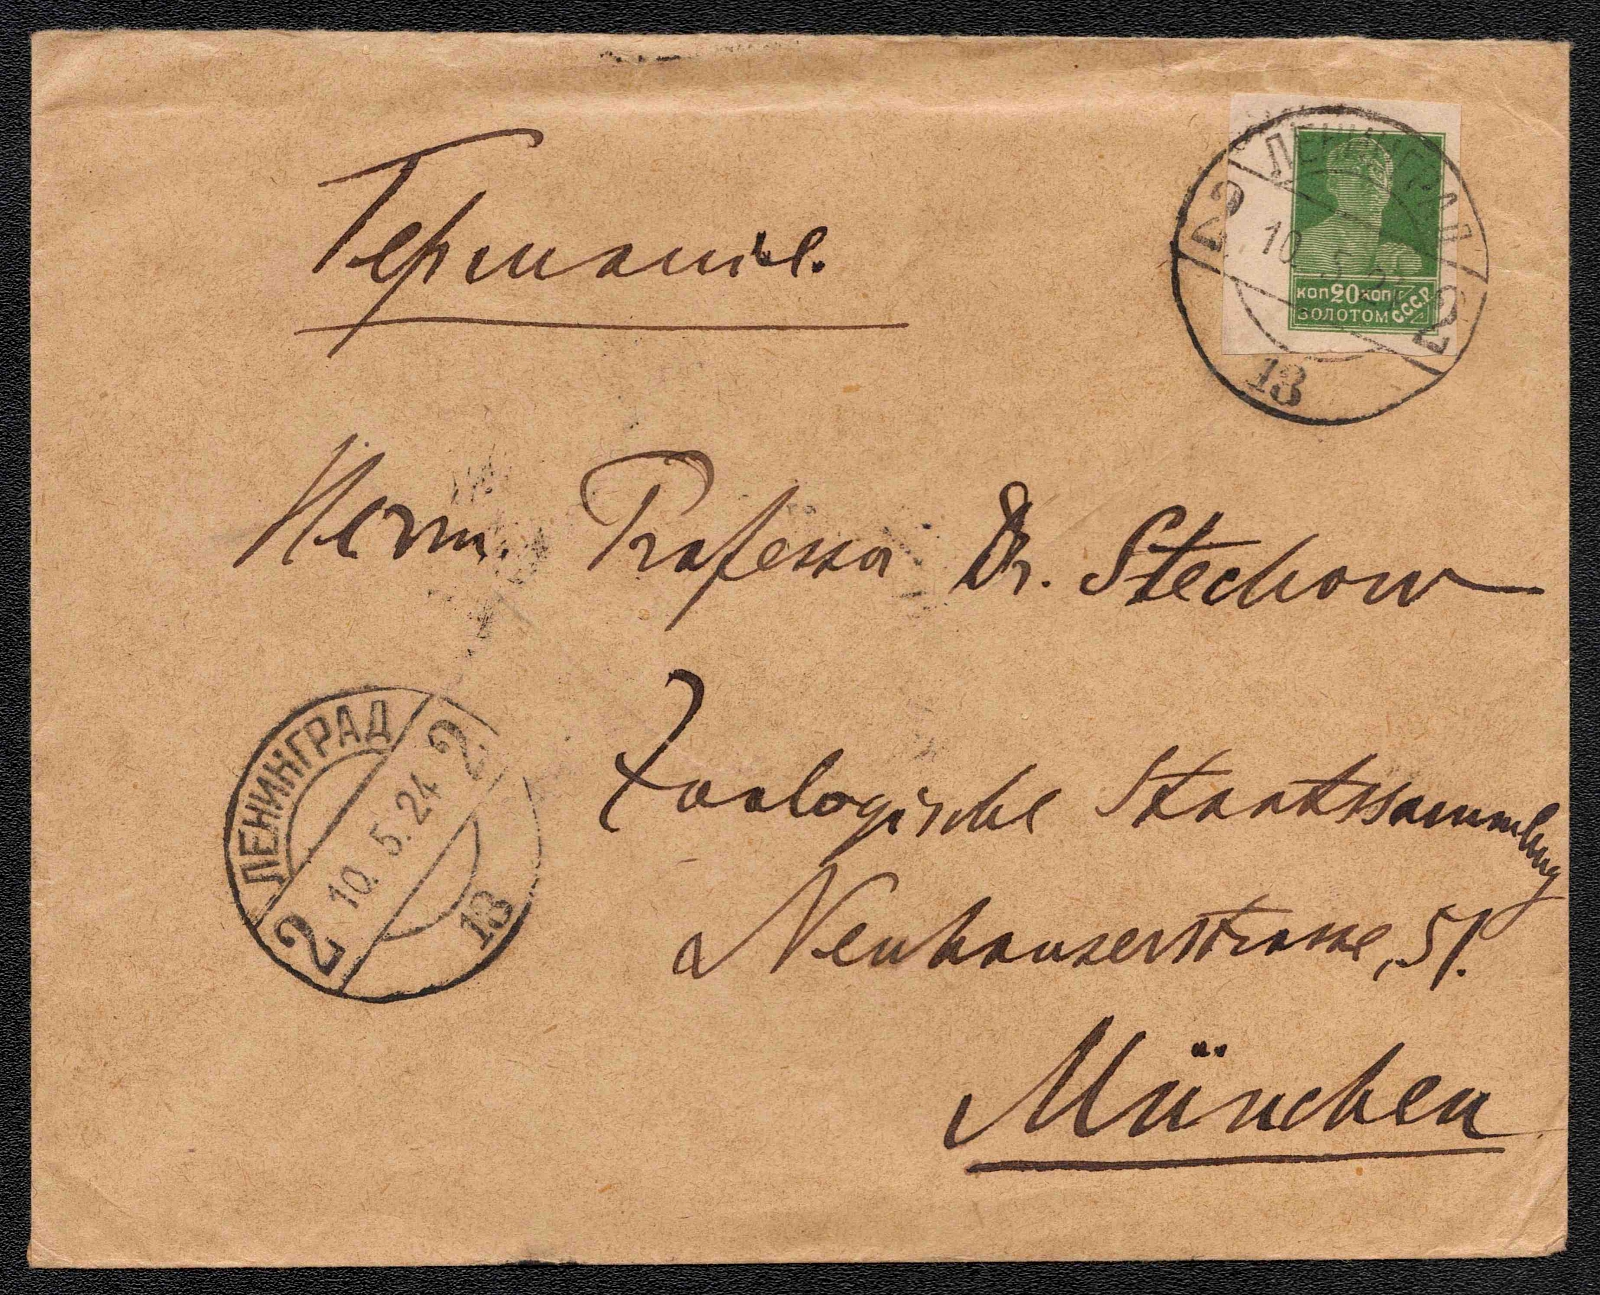 Германія.
ЛЕНИНГРАД
2 10.5.24 2
13
коп 20 коп
ЗОЛОТОМ С.С.С.Р.
Herrn. Professor Dr. Stechow
Zoologische Staatssammlung
Neuhauserstrasse, 51.
München
ЛЕНИНГРАД
2 10.5.24 2
13